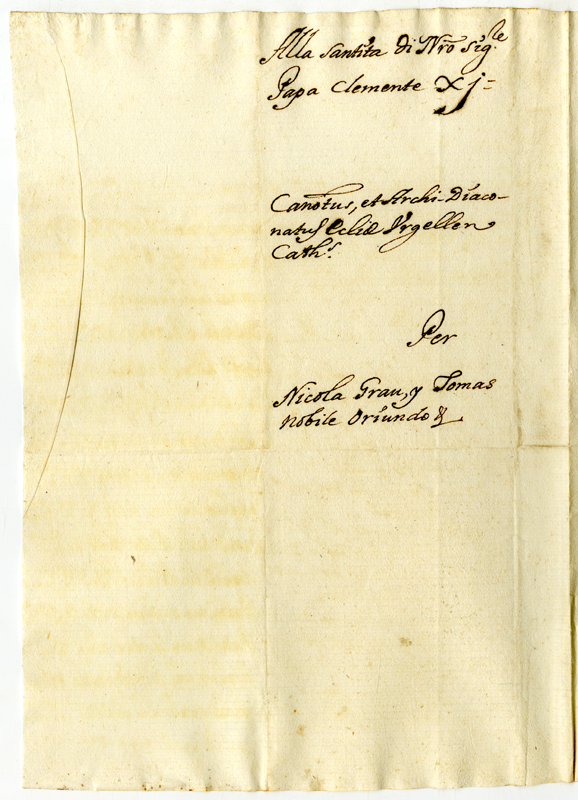 Alla Santità di Nrõ Sig.le
Papa Clemente XI=
Canõtus, et Archi-Diaco-
natus Ecliæ Vrgellen
Cath.s
Per
Nicola Grau, y Tomas
Nobile Oriundo &